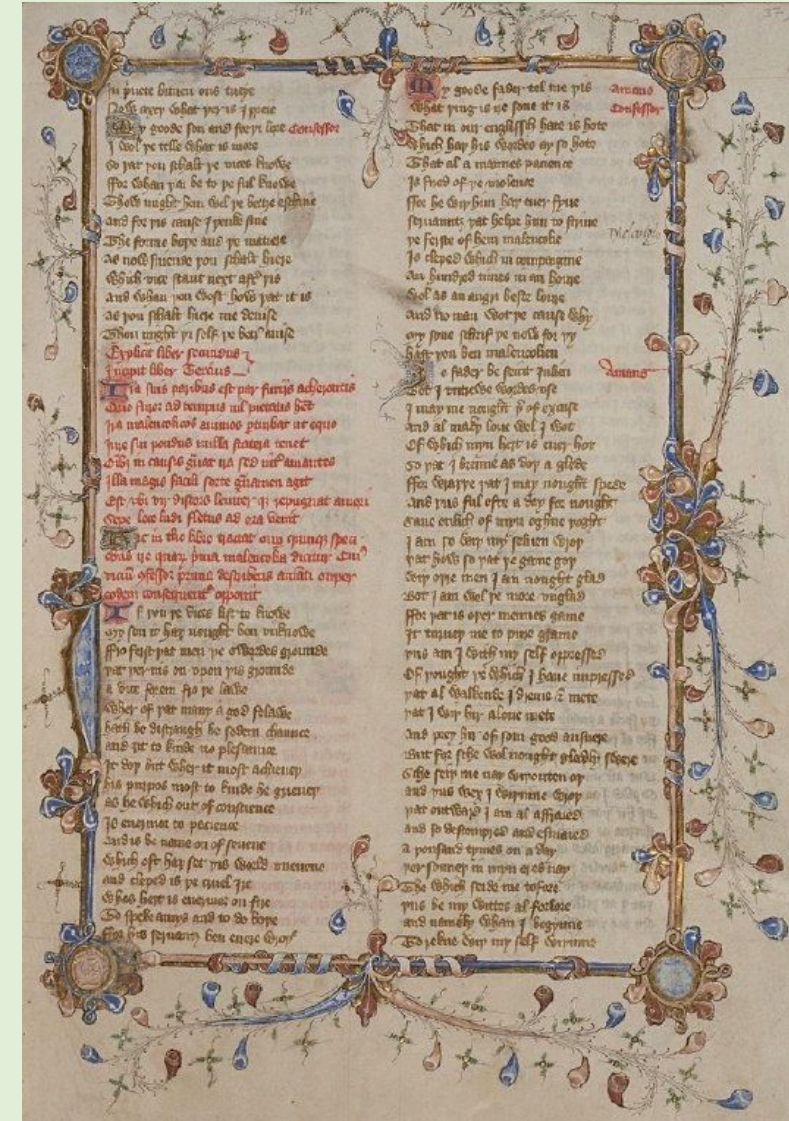 In priuete bitwen ous tweye
Now axeþ what þer is I preie
My goode son and for þi lore Confessor
I wol þe telle what is more
So þat þou schalt þe vices knowe
ffor whan þai be to þe ful knowe
Thow might hem wel þe bettre eschue
And for þis cause I þenke sue
The forme boþe and þe matiere
As now suiende þou schalt hiere
Which vice stant next aftʼ þis
And whan þou wost how þat it is
As þou schalt hiere me deuise
Thou might þi self þe betʼ auise
Explicit liber secundus
Incipit liber Tercius
Ira suis paribus est par furiis acherontis
Quo furor ad tempus nil pietatis het
Ira malencolicos animos pturbat ut equo
Iure sui pondus nulla statera tenet
Oĩbʒ in causis gͣuat ira sed intʼ amantes
Illa magis facili sorte gͣuamen agit
Est vbi vir discors leuiter qʒ repugnat amori
Sepe loco ludi fletus ad ora venit
Hic in tʼcio libro tractat
prima malencolia dicitur
If þou þe vices list to knowe
My son it haþ nought ben vnknowe
ffro ferst þat men þe swordes grounde
þat þer nis on vpon þis grounde
A vice forein fro þe lawe
Wher of þat many a god felawe
haþ be distraugh be sodein chaunce
And ȝit to kinde no plesaunce
It doþ but wher it most achieueþ
his purpos most to kinde he grieueþ
As he which out of conscience
Is enemie to pacience
And is be name on of seuene
Which oft haþ set þis world vneuene
And cleped is þe cruel Ire
Whos hert is euermor on fire
To speke amys and to do boþe
ffor his seruantʒ ben euere wroþ
My goode fader tel me þis Amans
What þing is ire sone it is Confessor
That in our englissh hate is hote
Which haþ his wordes ay so hote
That al a mannes pacience
Is fired of þe violence
ffor he wiþ him haþ euer fyue
seruauntz þat helpe him to stryue
þe ferste of hem malencolie
Is cleped which in compaignie
An hundred times in an houre
Wol as an angri beste loure
And no man wot þe cause why
My sone schrif þe now for þy
hast þou ben malencolien
Ȝe fader be seint Iulien Amans
Bot I vntrewe wordes vse
I may me nought þʼ of excuse
And al makþ loue wel I wot
Of which myn hert is euer hot
So þat I brenne as doþ a glede
ffor wraþþe þat I may nought spede
And þus ful ofte a day for nought
Saue onlich of myn oghne þoght
I am so wiþ my seluen wroþ
þat how so þat þe game goþ
Wiþ oþre men I am nought glad
Bot I am wel þe more vnglad
ffor þat is oþer mennes game
It turneþ me to pure grame
þus am I with my self oppressed
Of þought þe which I haue impressed
þat al wakende I dreme & mete
þat I wiþ hir alone mete
And prey hir of som good ansuere
But for sche wol nought gladly swere
Sche seiþ me nay wiþouten oþ
And þus wex I wiþinne wroþ
þat outward I am al affraied
And so destempred and esmaied
A þousand tymes on a day
þer souneþ in myn eres nay
The which seide me tofore
þus be my wittes al forlore
And namely whan I begynne
To rekne wiþ my self wiþinne